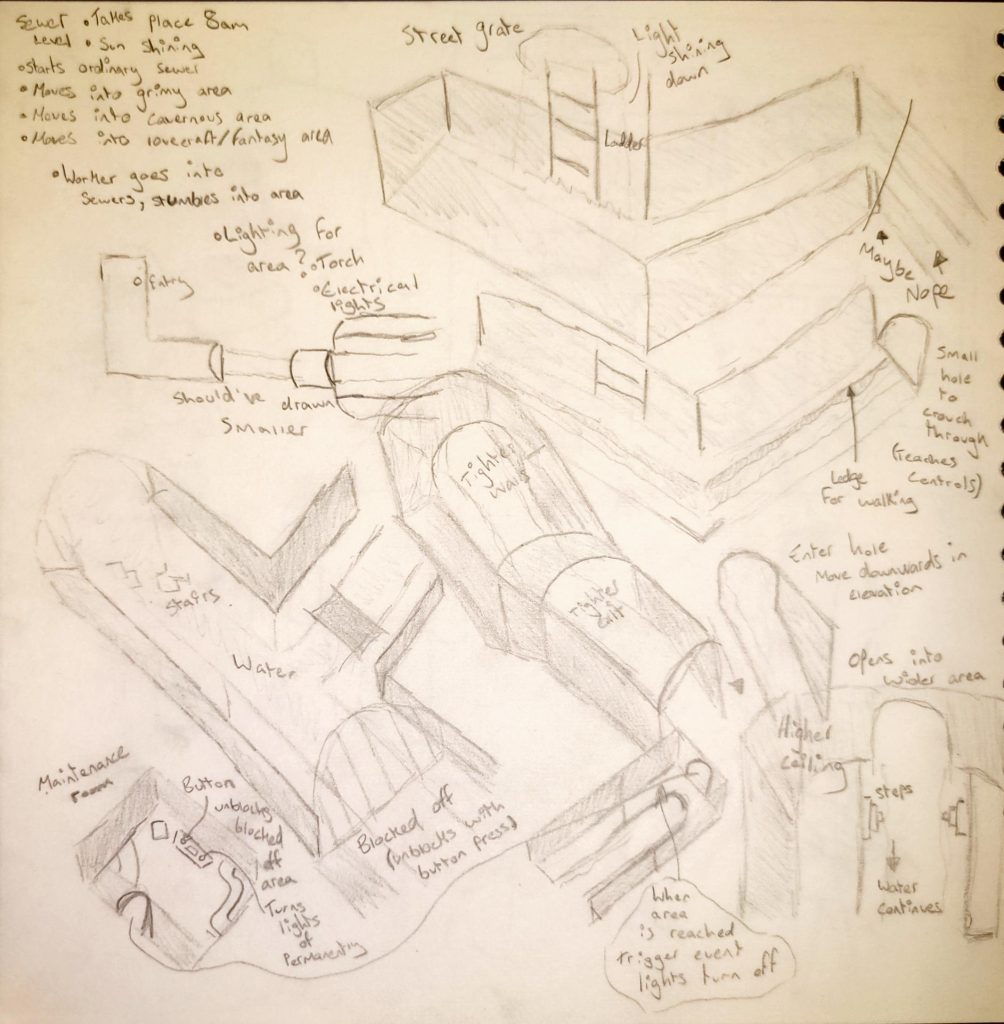 Sewer • Takes place 8am
Level • Sun shining
• Starts ordinary sewer
• Moves into grimy area
• Moves into cavernous area
• Moves into lovecraft/fantasy area
• Worker goes into
sewers, stumbles into area
• Lighting for
area? • Torch
• Electrical
lights
Street grate
Light
shining
down
Ladder
Maybe
Nope
Entry
Should've drawn
smaller
Small
hole
to
crouch
through
(reaches
controls)
Ledge
for walking
Tighter
walls
Tighter
exit
Stairs
Water
Enter hole
Move downwards in
elevation
Opens into
wider area
Higher
ceiling
steps
Water
continues
Maintenance
room
Button
unblocks
blocked
off
area
Turns
lights
of
Permanentny
Blocked off
(unblocks with
button press)
When
area
is reached
trigger event
lights turn off